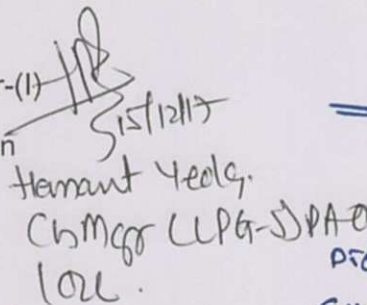 -(1)
n
15/12/17
Hemant Yedg.
Ch Mgr (LPG-S) PAO
IOCL.